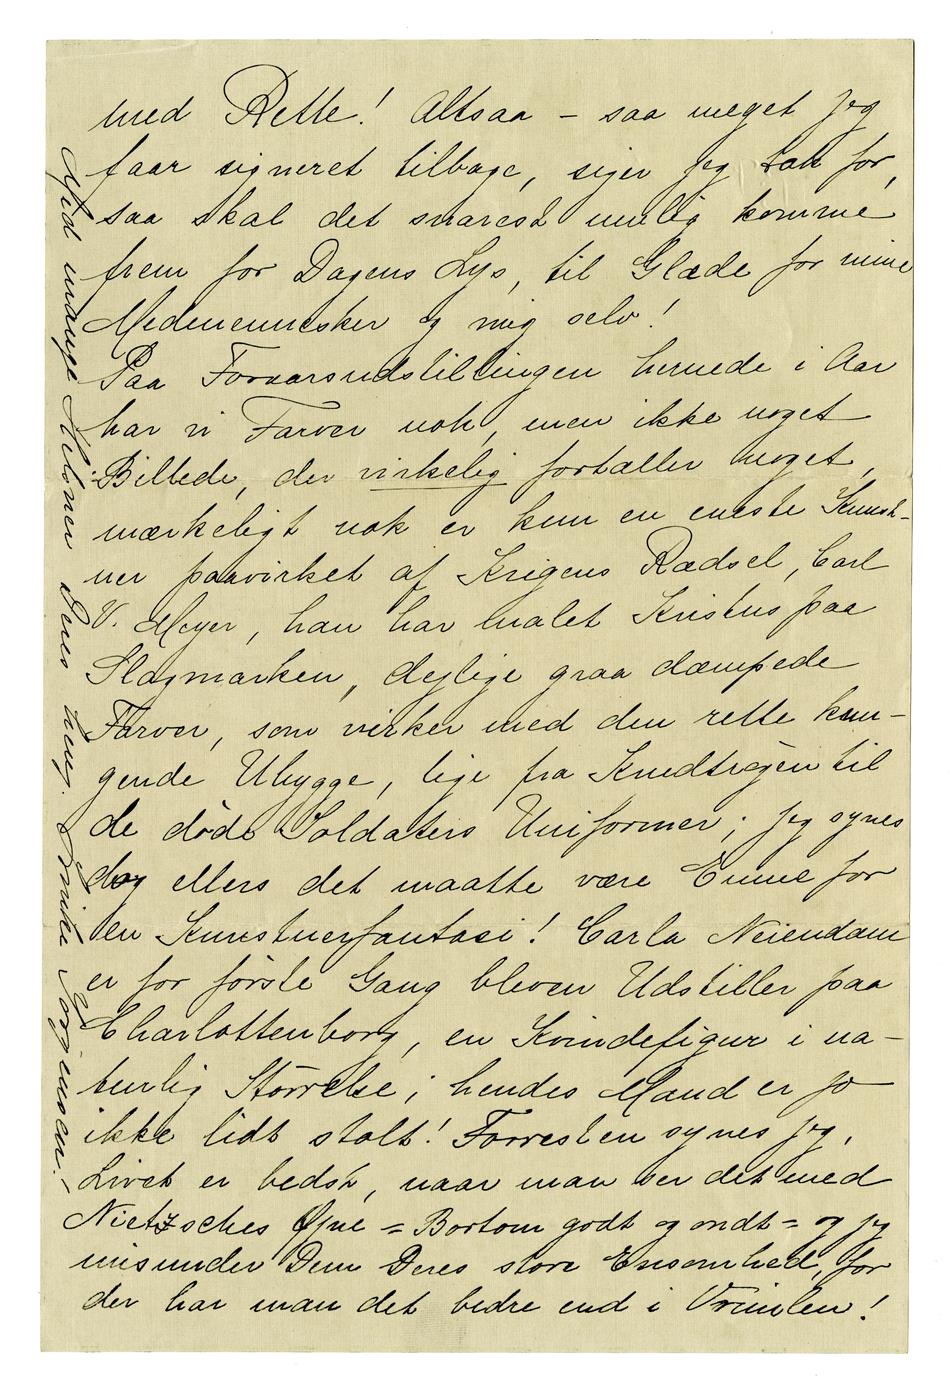 med Rette! Altsaa – saa meget jeg
faar signeret tilbage, siger jeg tak for,
saa skal det snarest mulig komme
frem for Dagens Lys, til Glæde for mine
Medmennesker og mig selv!
Paa Foraarsudstillingen hernede i Aar
har vi Farver nok, men ikke noget
Billede, der virkelig fortæller noget,
mærkeligt nok er kun en eneste Kunst-
ner paavirket af Krigens Rædsel, Carl
V. Meyer, han har malet Kristus paa
Slagmarken, dejlige graa dæmpede
Farver, som virker med den rette kna-
gende Uhygge, lige fra Knudtrøjen til
de døde Soldaters Uniformer; jeg synes
dog ellers det maatte være Emne for
en Kunstnerfantasi! Carla Neiendam
er for første Gang bleven Udstiller paa
Charlottenborg, en Kvindefigur i na-
turlig Størrelse; hendes Mand er jo
ikke lidt stolt! Forresten synes jeg,
Livet er bedst, naar man ser det med
Nietzsches Øjne = Bortom godt og ondt = og jeg
misunder Dem Deres store Ensomhed, for
der har man det bedre end i Vrimlen!
Med mange Hilsner Deres heng. Jörgensen.